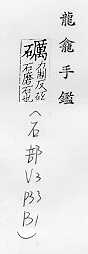 龍龕手鑑
礪力制反砥
礪石磨石也
〈石部V3
P33
B1〉